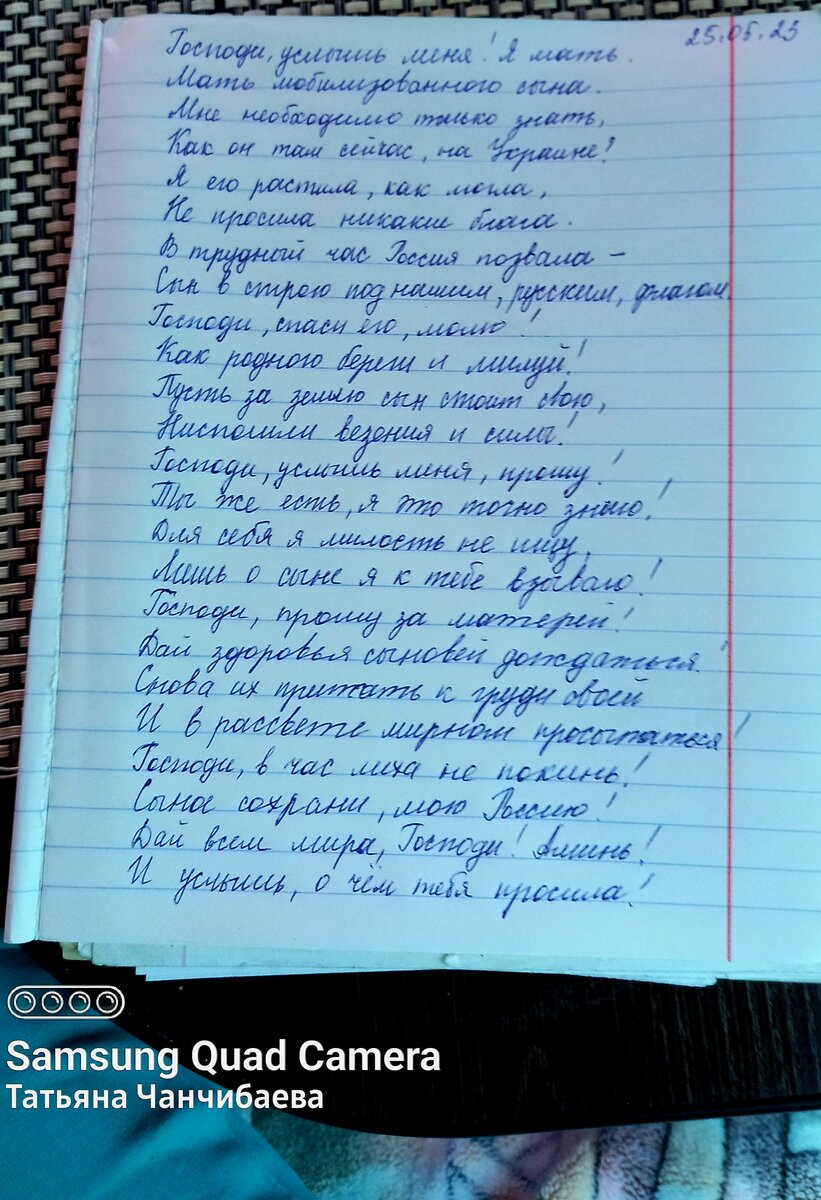 25.05.23
Господи, услышь меня! Я мать.
Мать мобилизованного сына.
Мне необходимо только знать,
Как он там сейчас, на Украине?
Я его растила, как могла,
Не просила никакие блага.
В трудный час Россия позвала –
Сын в строю под нашим, русским, флагом.
Господи, спаси его, молю!
Как родного береги и милуй!
Пусть за землю сын стоит свою,
Ниспошли везения и силы!
Господи, услышь меня, прошу!
Ты же есть, я это точно знаю!
Для себя я милость не ищу,
Лишь о сыне я к тебе взываю!
Господи, прошу за матерей!
Дай здоровья сыновей дождаться!
Снова их прижать к груди своей
И в рассвете мирном просыпаться!
Господи, в час лиха не покинь!
Сына сохрани, мою Россию!
Дай всем мира, Господи! Аминь!
И услышь, о чём тебя просила!
Samsung Quad Camera
Татьяна Чанчибаева